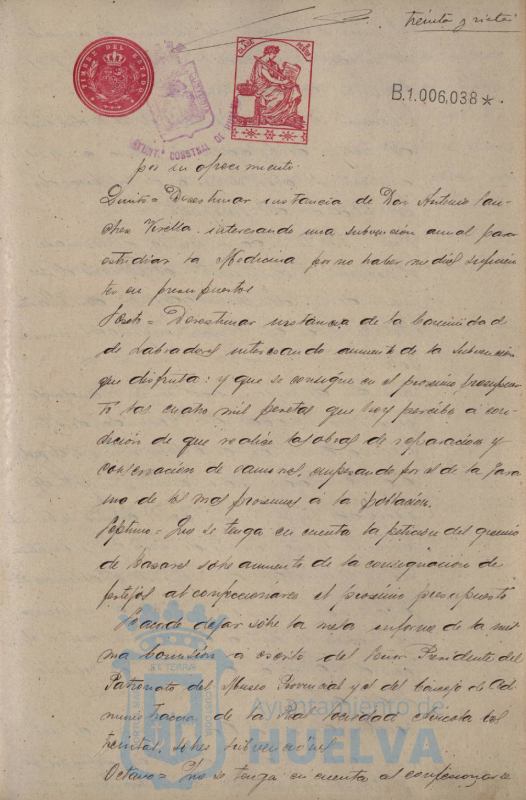 treinta y siete
TIMBRE DEL ESTADO
CLASE
B.1.006.038*
AYUNT.º CONSTNAL DE HUELVA
por su ofrecimiento.
Quinto = Desestimar instancia de Don Antonio San-
chez Virella interesando una subvención anual para
estudiar la Medicina por no haber medios suficien
tes en presupuestos
Sexto = Desestimar instancia de la Comunidad
de Labradores interesando aumento de la subvención
que disfruta: y que se consigne en el proximo presupues
to las cuatro mil pesetas que hoy percibe a con-
dición de que realice las obras de reparación y
conservacion de caminos, empezando por el de la
de los mas proximos á la población.
Septimo = Que se tenga en cuenta la petición del gremio
de Bazares sobre aumento de la consignación de
festejos al confeccionarse el proximo presupuesto
dejar sobre la mesa informe de la mis
ma Comisión a escrito del Señor Presidente del
Patronato del Museo Provincial y el del Consejo de Ad
ministracion de la Real Sociedad Colombi
sobre subvenciones
Octavo = Que se tenga en cuenta al confeccionarse
Ayuntamiento de
HUELVA